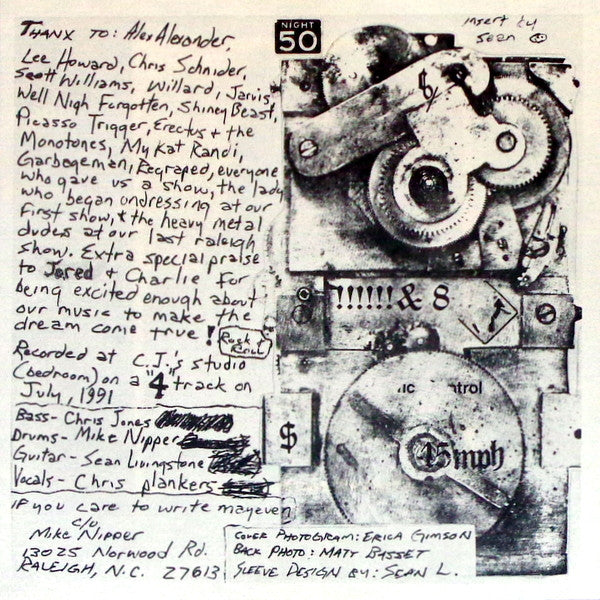 THANX TO: Alex Alexander,
Lee Howard, Chris Schnider,
Scott Williams, Willard, Jarvis,
Well Nigh Forgotten, Shiney Beast,
Picasso Trigger, Erectus & the
Monotones, My Kat Randi,
Garbageman, Regraped, everyone
who gave us a show, the lady
who began undressing at our
first show, & the heavy metal
dudes at our last raleigh
show. Extra special praise
to Jared & Charlie for
being excited enough about
our music to make the
dream come true!
Rock & Roll
Recorded at C.J.'s studio
(bedroom) on a "4" track on
July, 1991
Bass- Chris Jones
Drums- Mike Nipper
Guitar- Sean Livingstone
Vocals- Chris plankers
if you care to write mayeven
c/o
Mike Nipper
13025 Norwood Rd.
RALEIGH, N.C. 27613
NIGHT
50
insert by
sean
!!!!!!& 8
ic ntrol
$
45mph
COVER PHOTOGRAM: ERICA GIMSON
BACK PHOTO: MATT BASSET
SLEEVE DESIGN BY: SEAN L.